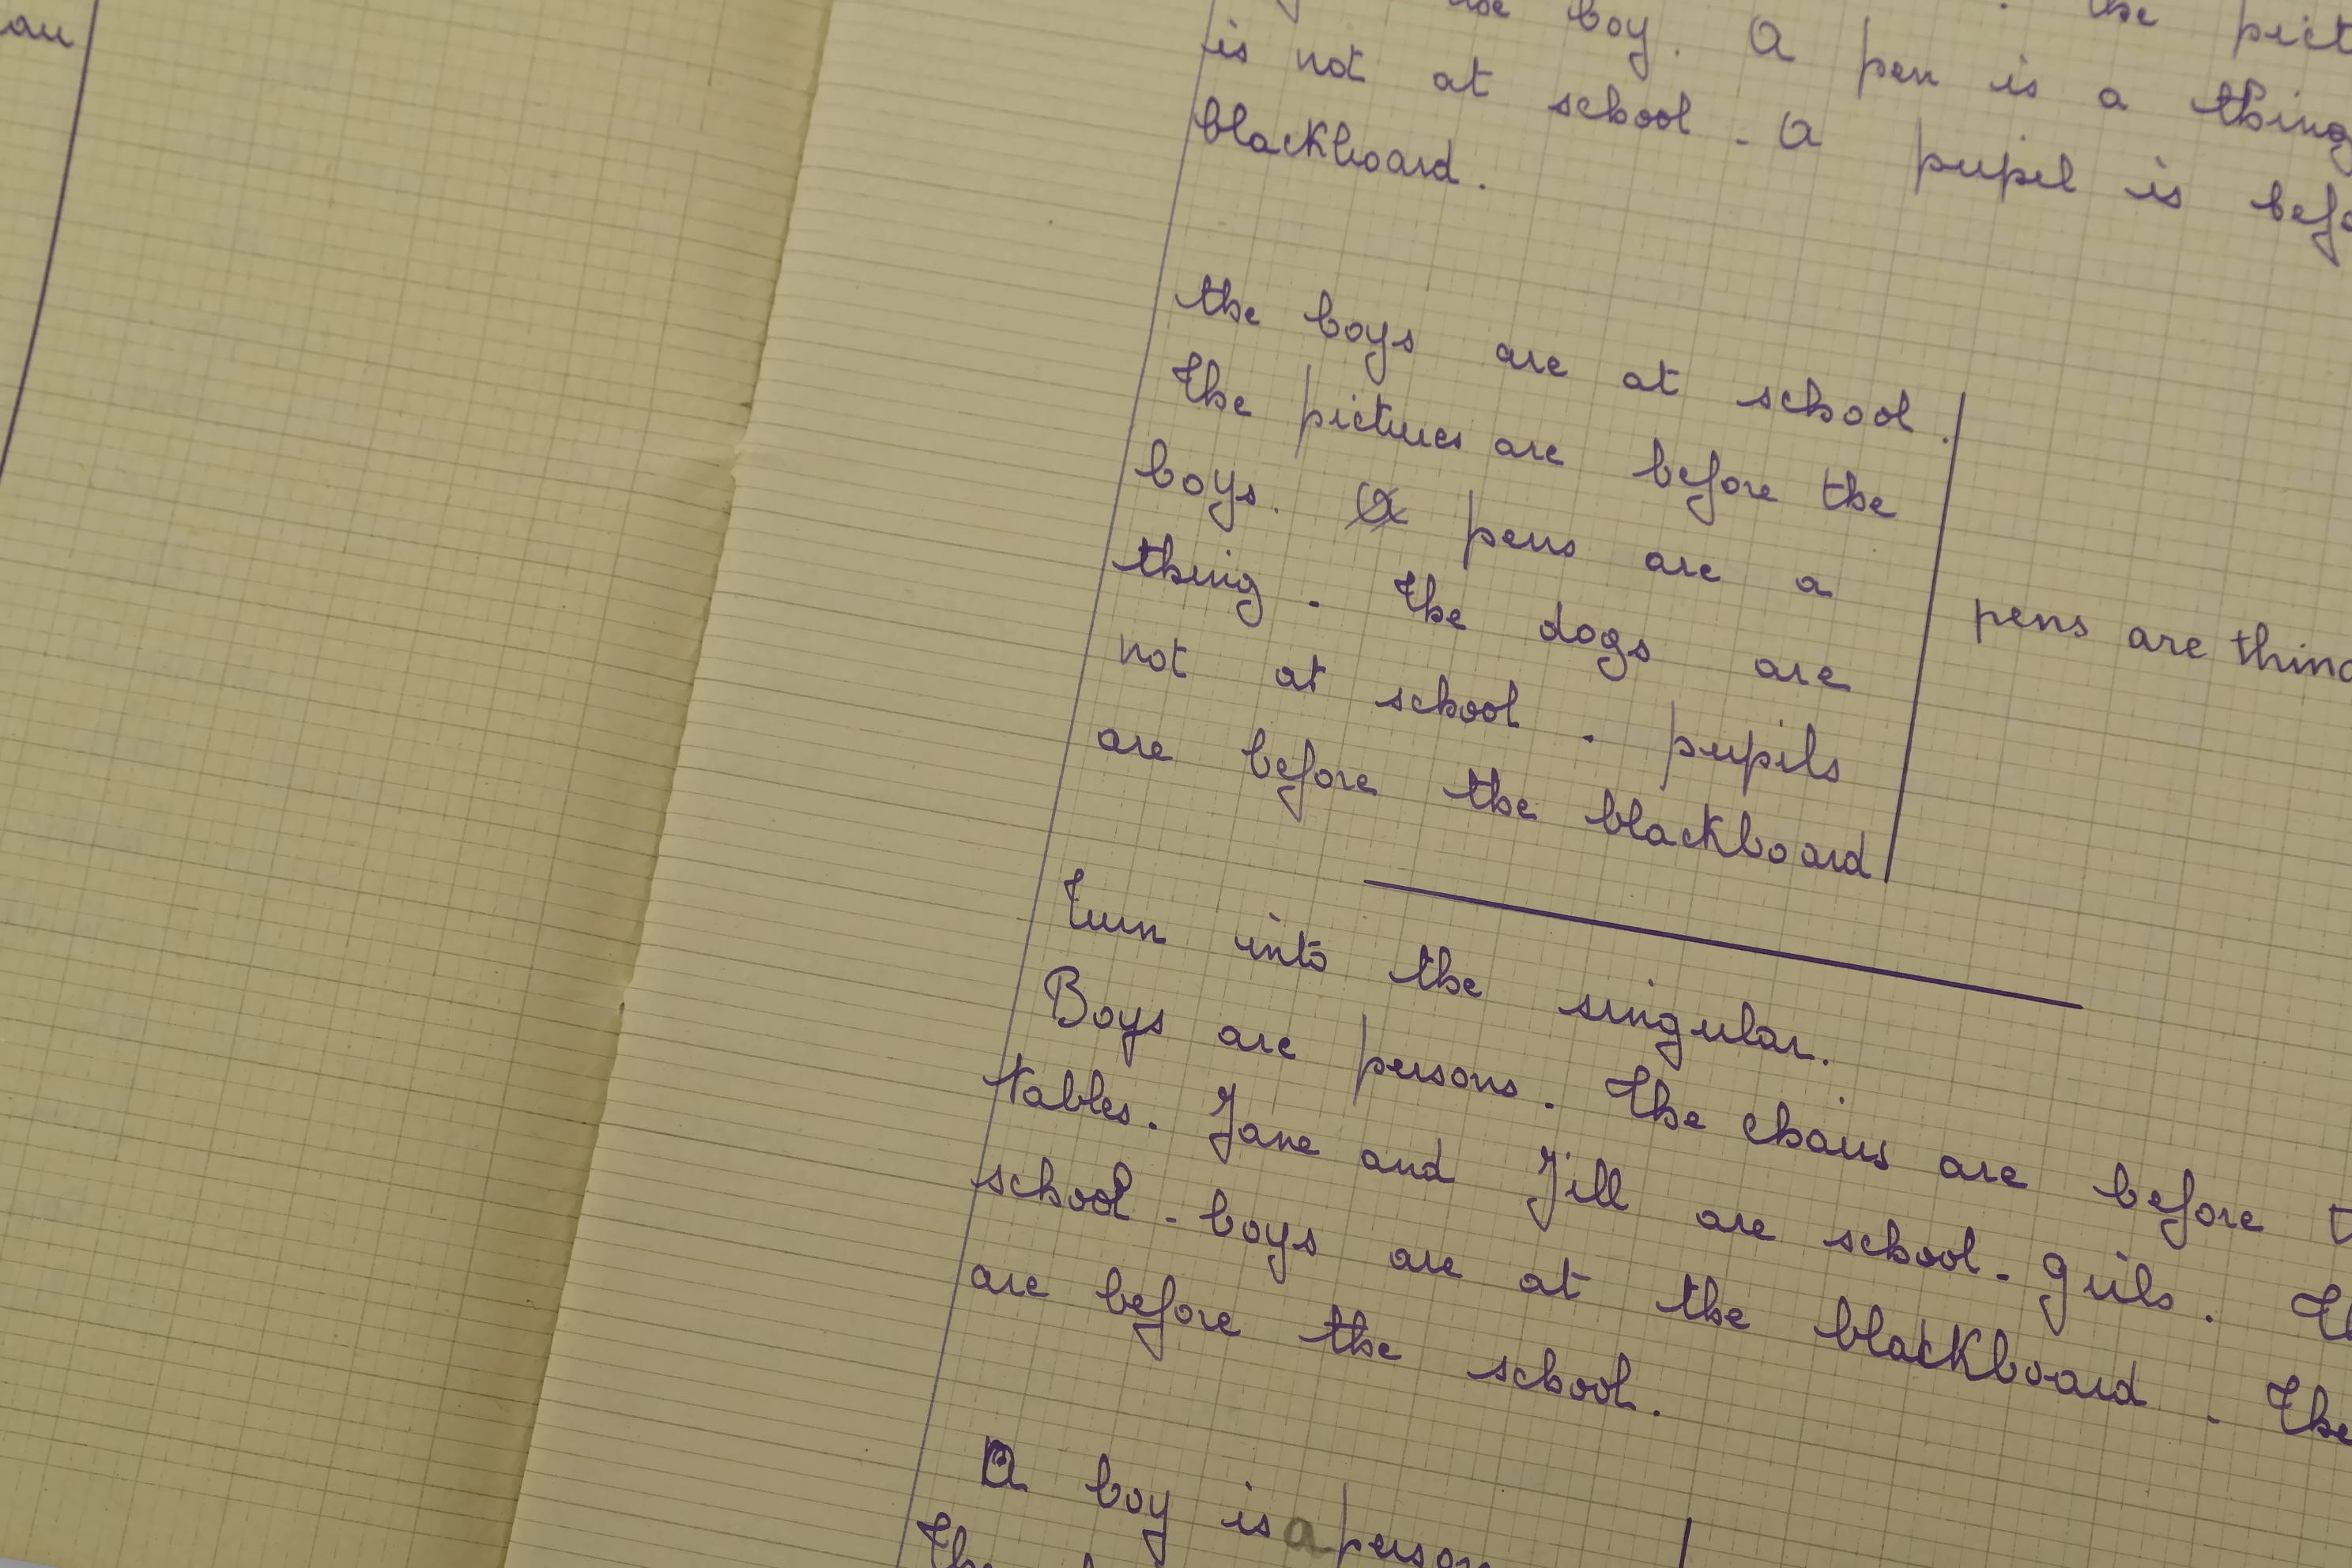 au
boy. A pen is a thing
the pict
is not at school - A pupil is befo
blackboard.
the boys are at school.
The pictures are before the
boys. pens are a
thing - The dogs are
not at school - pupils
are before the blackboard
pens are thing
Turn into the singular.
Boys are persons. The chairs are before t
tables. Jane and Jill are school-girls. Th
school-boys are at the blackboard - The
are before the school.
A boy is a person
The